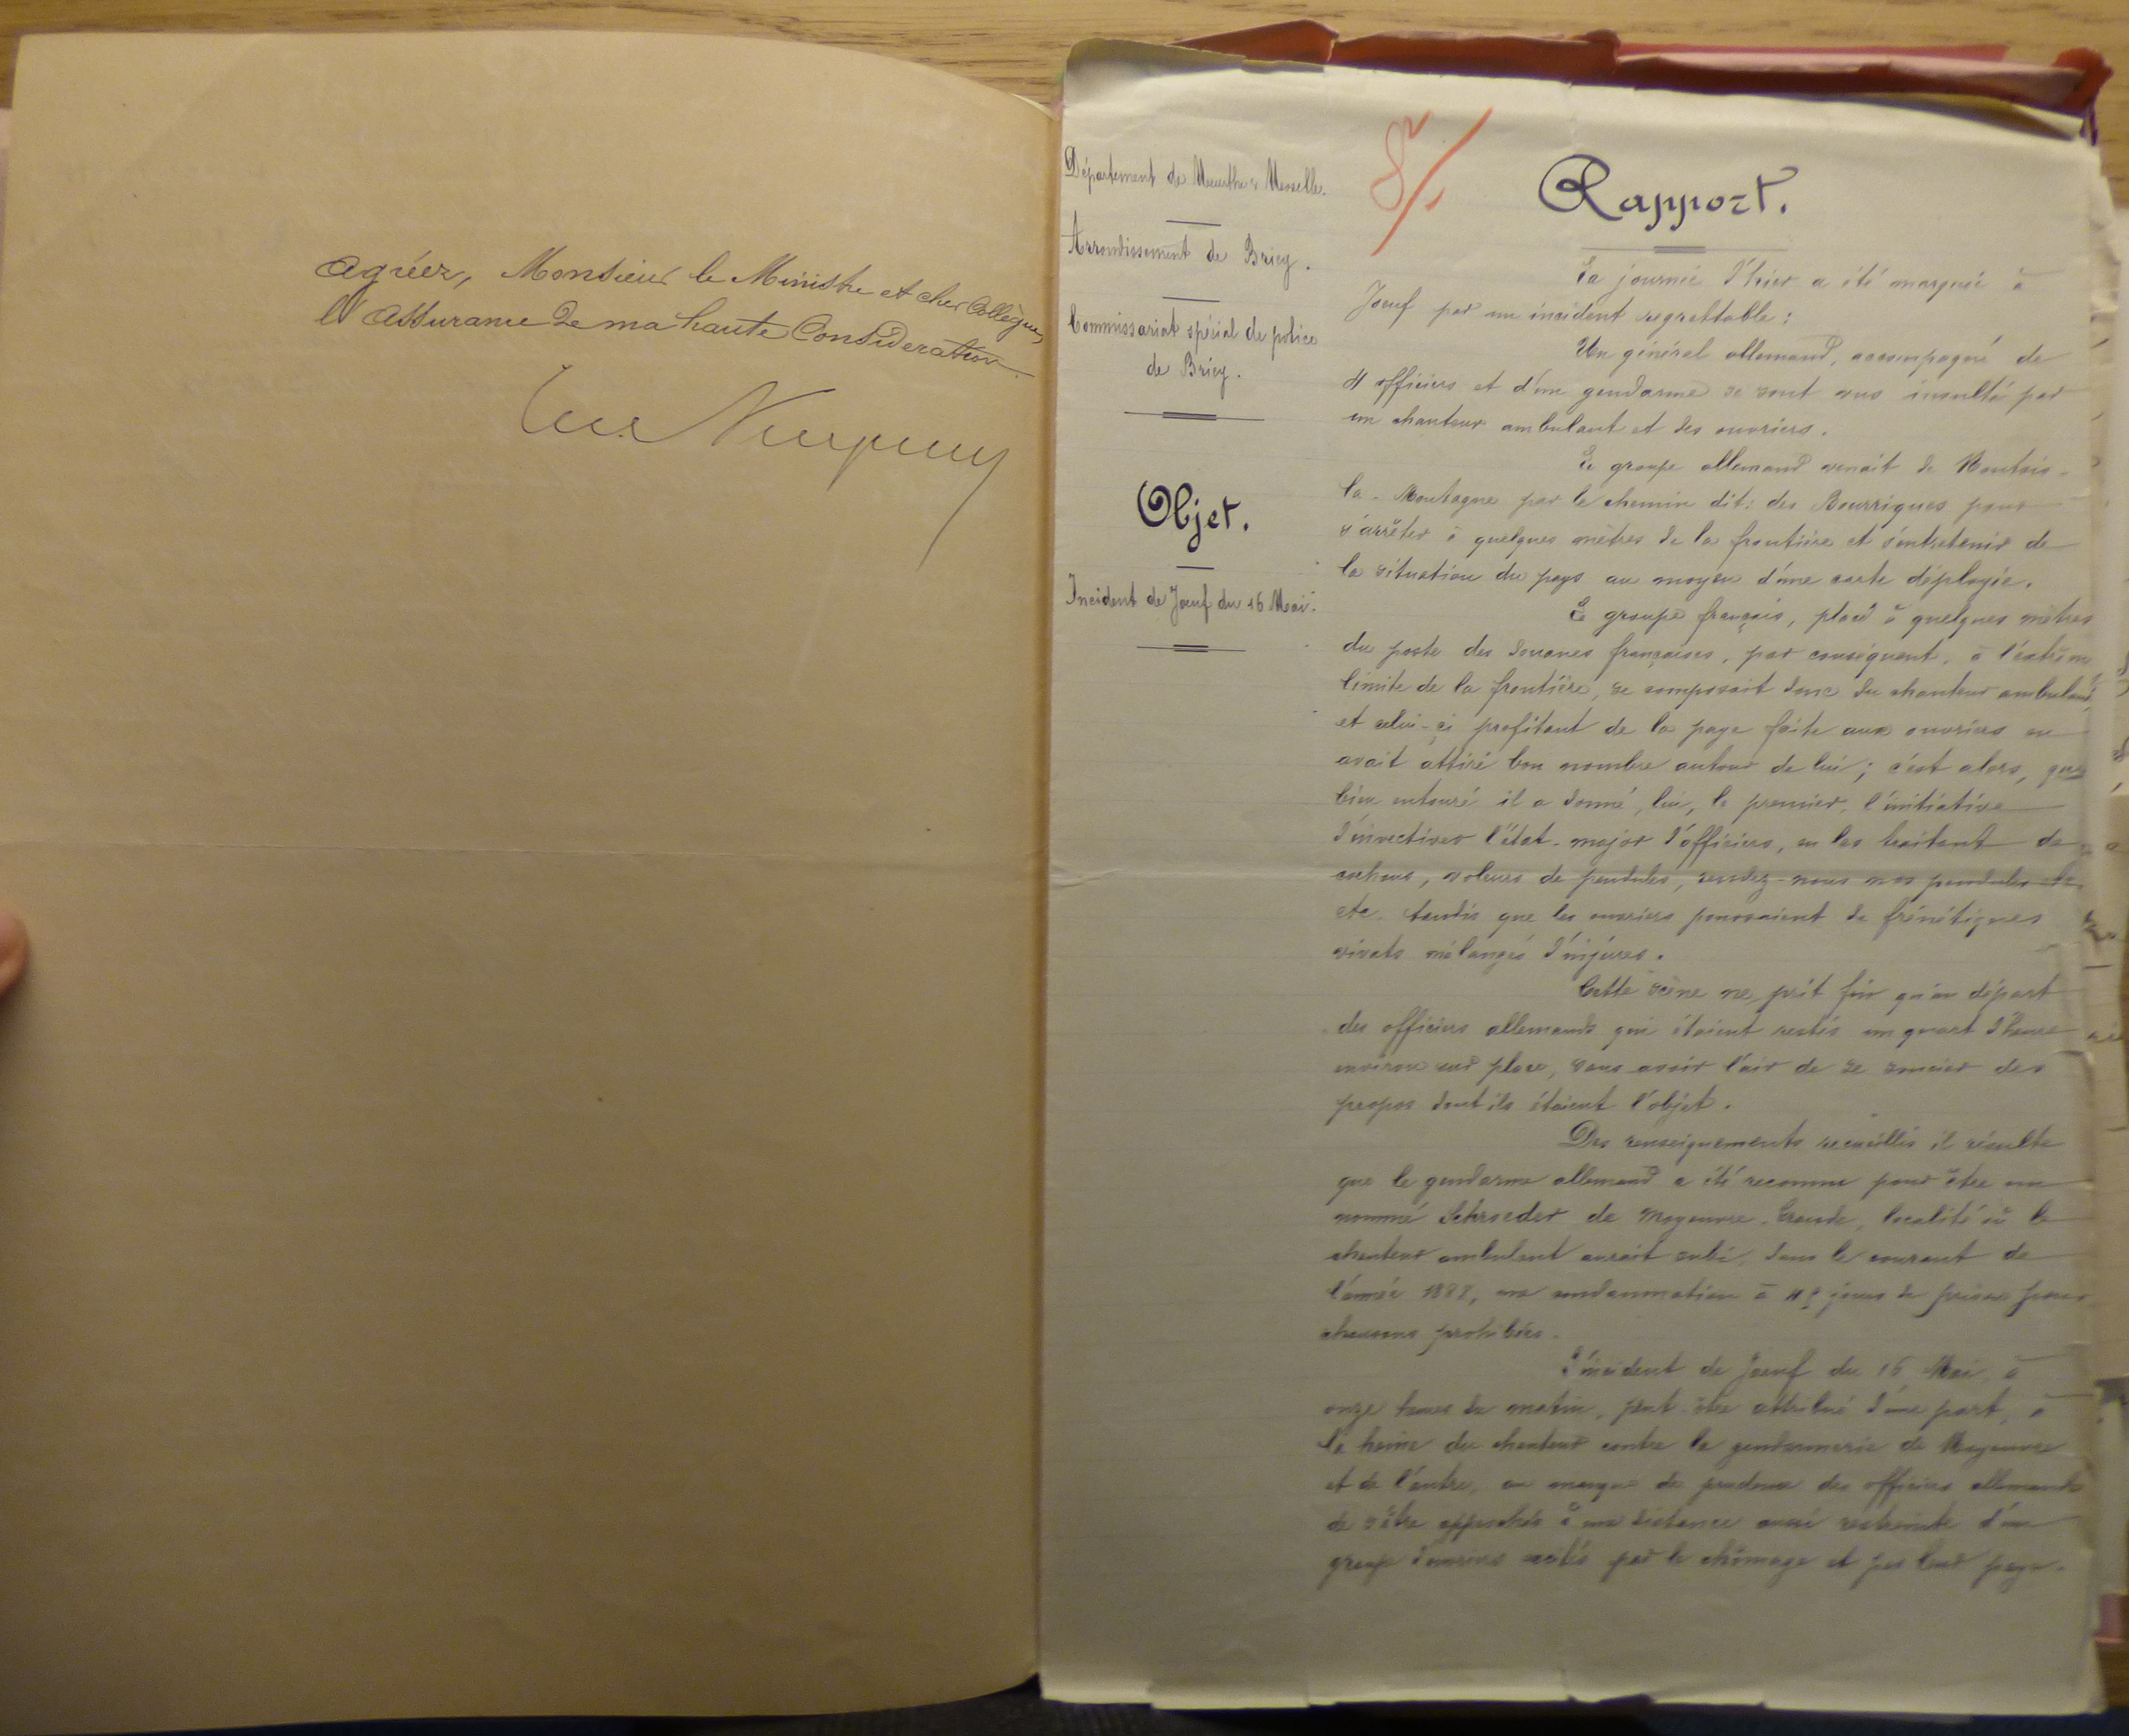 Agréez, Monsieur le Ministre et cher Collègue,
l'Assurance de ma haute Considération.
Département de Meurthe & Moselle.
Arrondissement de Briey.
Commissariat spécial de police
de Briey.
Objet.
Incident de Jœuf du 16 Mai.
Rapport.
La journée d'hier a été marquée à
Jœuf par un incident regrettable :
Un général allemand, accompagné de
4 officiers et d'un gendarme se sont vus insulté par
un chanteur ambulant et des ouvriers.
Le groupe allemand venait de Montois-
la-Montagne par le chemin dit: des Bourriques pour
s'arrêter à quelques mètres de la frontière et s'entretenir de
la situation du pays au moyen d'une carte déployée.
Le groupe français, placé à quelques mètres
du poste des douanes françaises, par conséquent, à l'extrême
limite de la frontière, se composait donc du chanteur ambulant,
et celui-ci profitant de la paye faite aux ouvriers en
avait attiré bon nombre autour de lui ; c'est alors, que
bien entouré il a donné, lui, le premier, l'initiative
d'invectiver l'état-major d'officiers, en les traitant de
cochons, voleurs de pendules, rendez-nous nos pendules
etc. tandis que les ouvriers poussaient de frénétiques
vivats mélangés d'injures.
Cette scène ne prit fin qu'au départ
des officiers allemands qui étaient restés un quart d'heure
environ sur place, sans avoir l'air de se soucier des
propos dont ils étaient l'objet.
Des renseignements recueillis il résulte
que le gendarme allemand a été reconnu pour être un
nommé Schroeder de Moyeuvre-Grande, localité où le
chanteur ambulant aurait subi, dans le courant de
l'année 1888, une condamnation à jours de prison pour
chansons prohibées.
L'incident de Jœuf du 16 Mai, à
onze heures du matin, peut-être attribué d'une part, à
la haine du chanteur contre la gendarmerie de Moyeuvre
et de l'autre, au manque de prudence des officiers allemands
de s'être approchés à une distance aussi restreinte d'un
groupe d'ouvriers excités par le chômage et par leur paye.